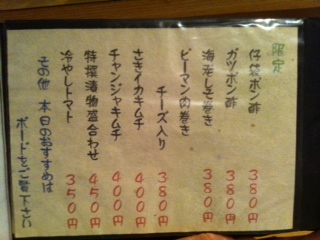 限定
仔袋ポン酢 380円
ガツポン酢 380円
海老しそ巻き 380円
ピーマン肉巻き
チーズ入り 380円
さきイカキムチ 400円
チャンジャキムチ 400円
特撰漬物盛合わせ 450円
冷やしトマト 350円
その他 本日のおすすめは
ボードをご覧下さい